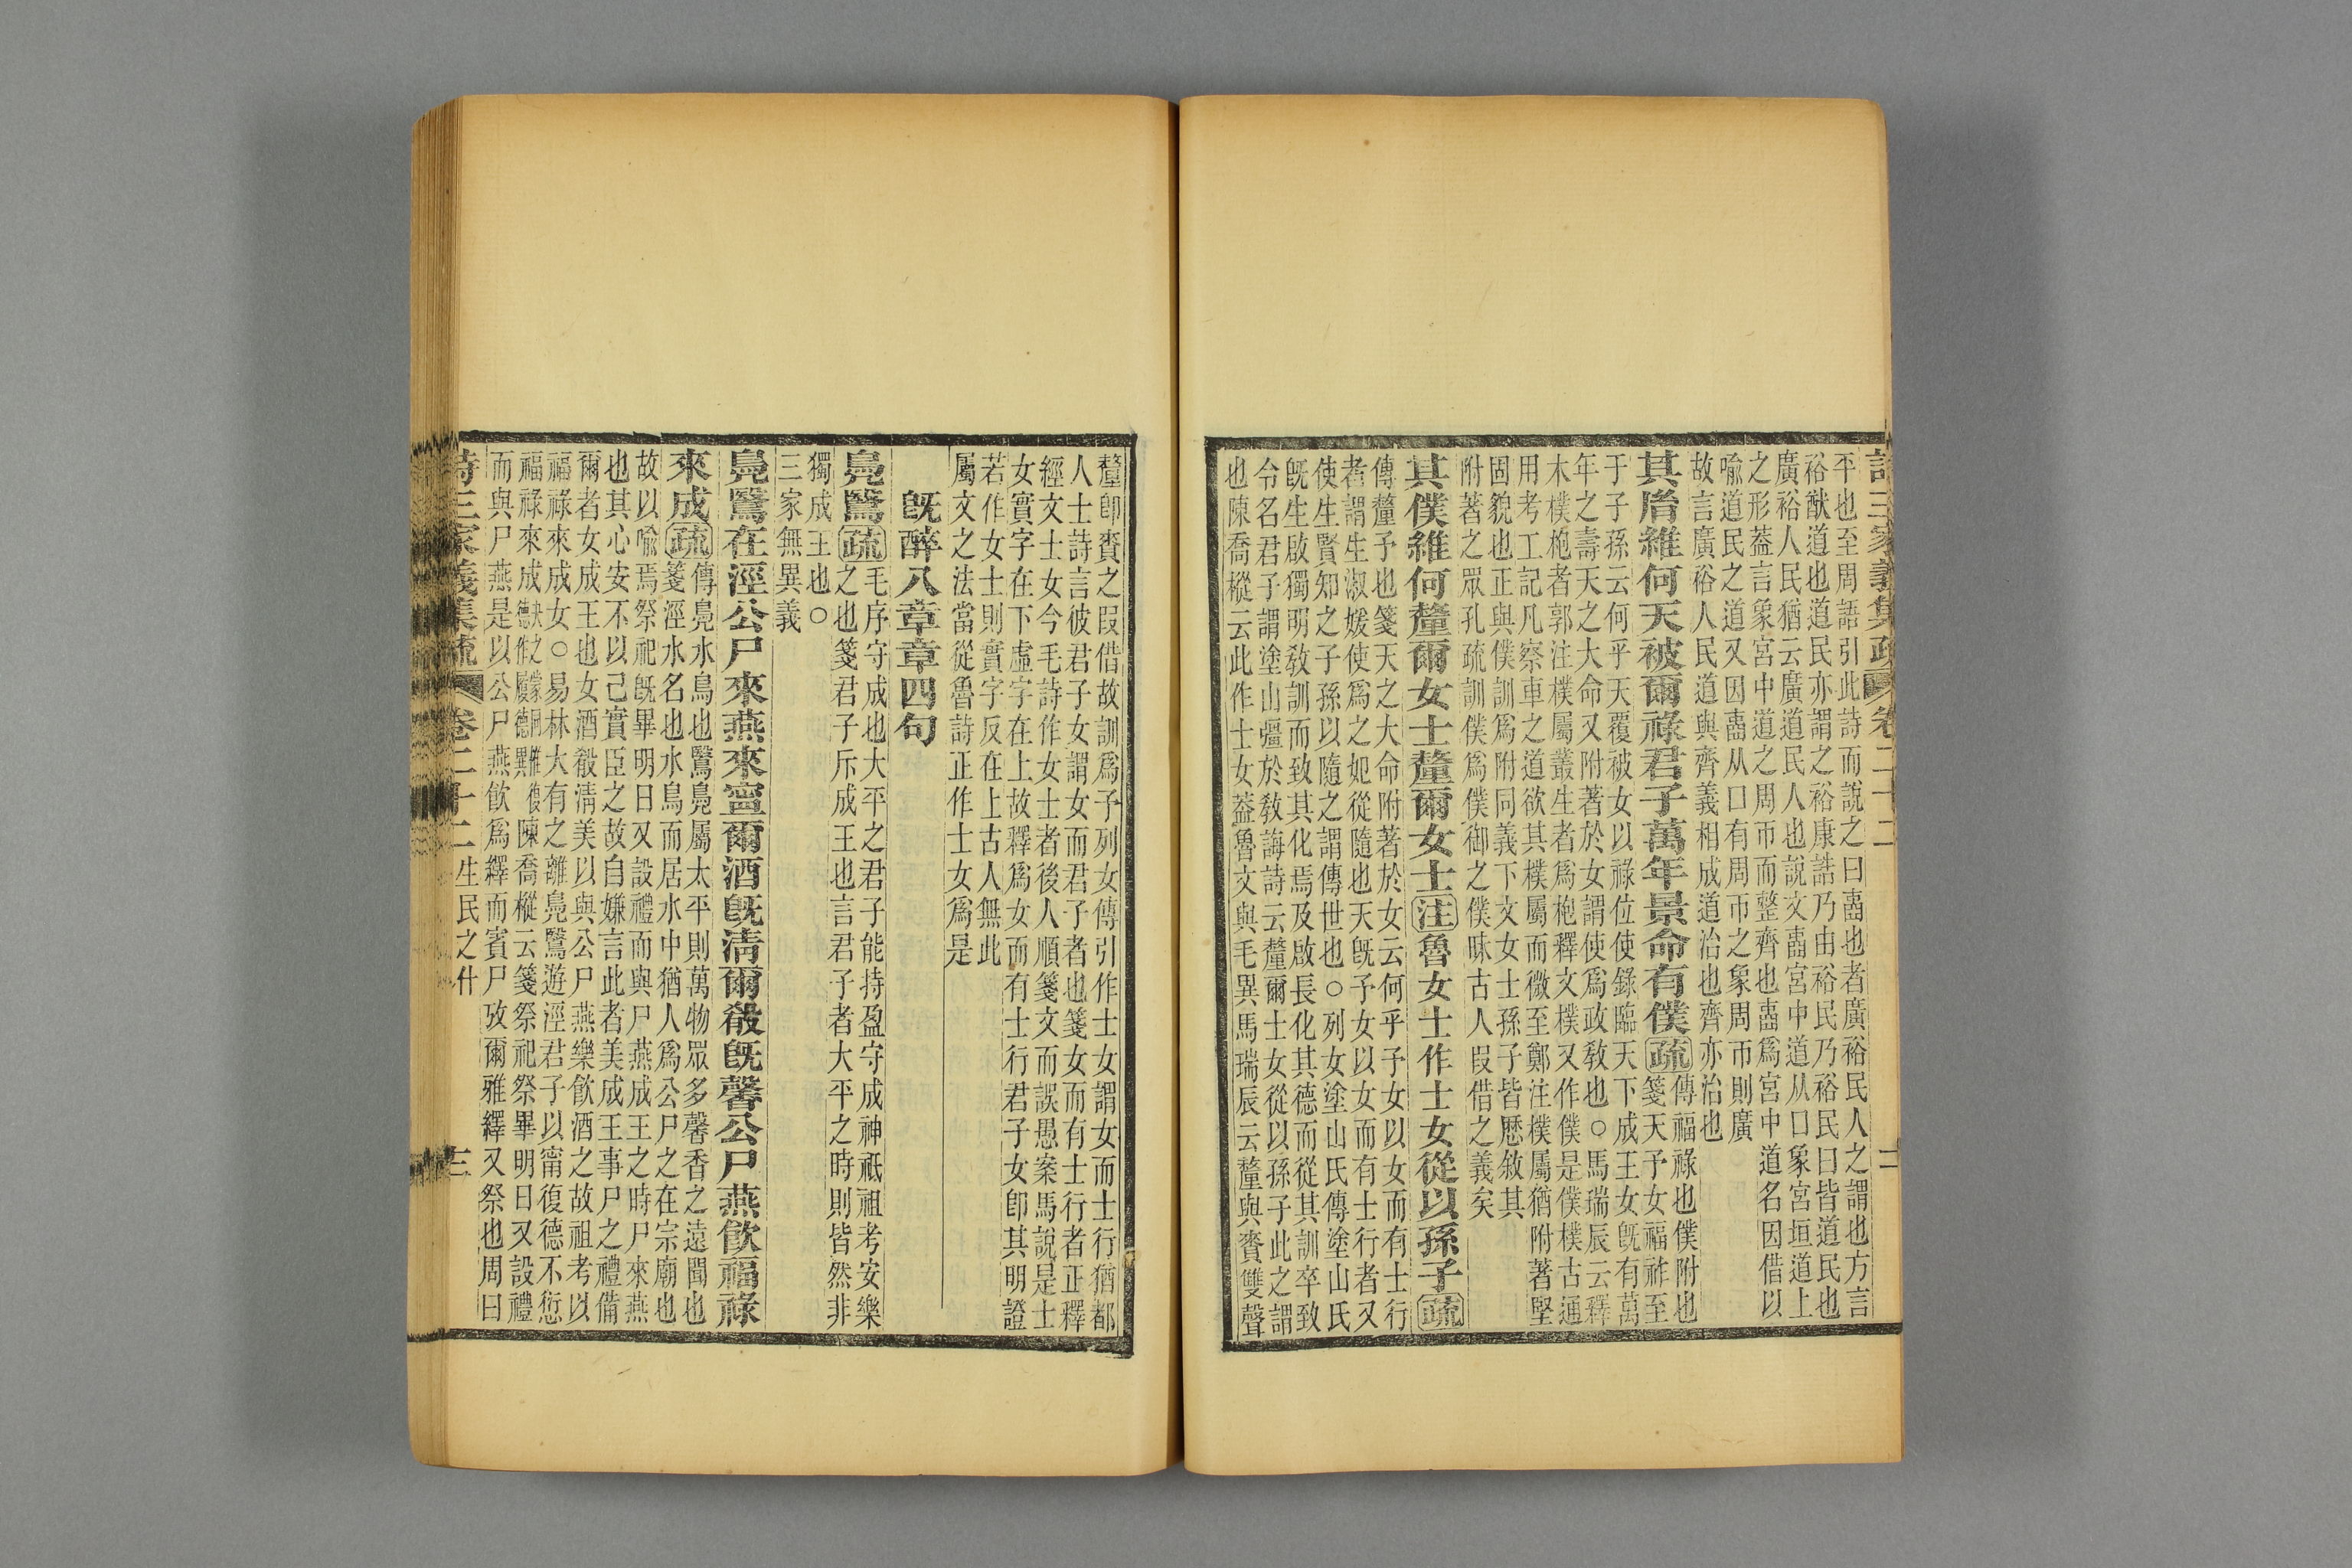 詩三家義集疏 卷二十二 二
平也至周語引此詩而說之曰壼也者廣裕民人之謂也方言
裕猷道也道民亦謂之裕康誥乃由裕民乃裕民曰皆道民也
廣裕人民猶云廣道民人也說文壼宮中道从囗象宮垣道上
之形葢言象宮中道之周帀而整齊也壼爲宮中道名因借以
喩道民之道又因壼从囗有周帀之象周帀則廣
故言廣裕人民道與齊義相成道治也齊亦治也
其𦙍維何天被爾祿君子萬年景命有僕疏
傳福祿也僕附也
箋天予女福祚至
于子孫云何乎天覆被女以祿位使錄臨天下成王女既有萬
年之壽天之大命又附著於女謂使爲政敎也○馬瑞辰云釋
木樸枹者郭注樸屬叢生者爲枹釋文樸又作僕是僕樸古通
用考工記凡察車之道欲其樸屬而微至鄭注樸屬猶附著堅
固貌也正與僕訓爲附同義下文女士孫子皆歷敘其
附著之眾孔疏訓僕爲僕御之僕昧古人叚借之義矣
其僕維何釐爾女士釐爾女士注魯女士作士女從以孫子疏
傳釐予也箋天之大命附著於女云何乎予女以女而有士行
者謂生淑媛使爲之妃從隨也天既予女以女而有士行者又
使生賢知之子孫以隨之謂傳世也○列女塗山氏傳塗山氏
既生啟獨明敎訓而致其化焉及啟長化其德而從其訓卒致
令名君子謂塗山彊於敎誨詩云釐爾士女從以孫子此之謂
也陳喬樅云此作士女葢魯文與毛異馬瑞辰云釐與賚雙聲
釐卽賚之叚借故訓爲予列女傳引作士女謂女而士行猶都
人士詩言彼君子女謂女而君子者也箋女而有士行者正釋
經文士女今毛詩作女士者後人順箋文而誤愚案馬說是士
女實字在下虛字在上故釋爲女而有士行君子女卽其明證
若作女士則實字反在上古人無此
屬文之法當從魯詩正作士女爲是
既醉八章章四句
鳧鷖疏
毛序守成也大平之君子能持盈守成神祇祖考安樂
之也箋君子斥成王也言君子者大平之時則皆然非
獨成王也○
三家無異義
鳧鷖在涇公尸來燕來寍爾酒既淸爾殽既馨公尸燕飮福祿
來成疏
傳鳧水鳥也鷖鳧屬太平則萬物眾多馨香之遠聞也
箋涇水名也水鳥而居水中猶人爲公尸之在宗廟也
故以喩焉祭祀既畢明日又設禮而與尸燕成王之時尸來燕
也其心安不以己實臣之故自嫌言此者美成王事尸之禮備
爾者女成王也女酒殽淸美以與公尸燕樂飮酒之故祖考以
福祿來成女○易林大有之離鳧鷖遊涇君子以甯復德不愆
福祿來成陳喬樅云箋祭祀祭畢明日又設禮
而與尸燕是以公尸燕飮爲繹而賓尸攷爾雅繹又祭也周曰
詩三家義集疏 卷二十二 生民之什 三